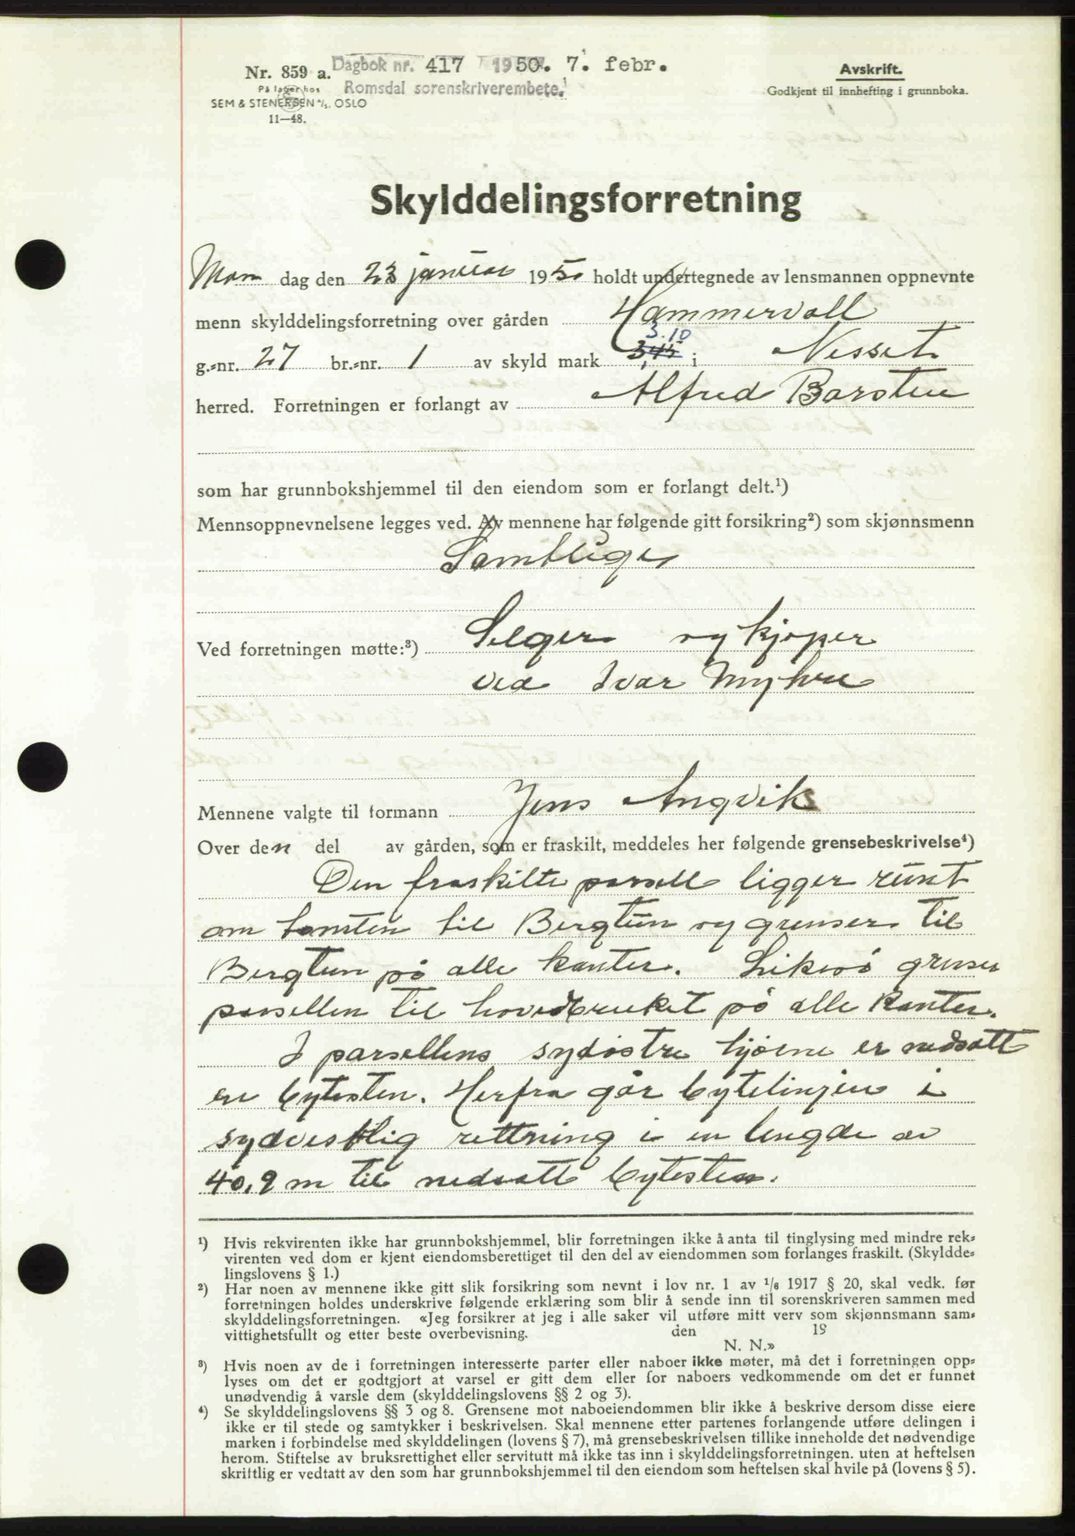 Nr. 859 a.
På lager hos
SEM & STENERSEN A/S, OSLO
11—48.
Dagbok nr. 417 1950. 7. febr.
Romsdal sorenskriverembete.
Avskrift.
Godkjent til innhefting i grunnboka.
Skylddelingsforretning
Man dag den 23 januar 1950 holdt undertegnede av lensmannen oppnevnte
menn skylddelingsforretning over gården Hammervoll
3.10
g.-nr. 27 br.-nr. 1 av skyld mark 3,45 i Nesset
herred. Forretningen er forlangt av Alfred Barsten
som har grunnbokshjemmel til den eiendom som er forlangt delt.¹)
Mennsoppnevnelsene legges ved. Av mennene har følgende gitt forsikring²) som skjønnsmenn
Samtlige
Ved forretningen møtte:³) Selger og kjøper
ved Ivar Myhre
Mennene valgte til formann Jens Angvik
Over den del av gården, som er fraskilt, meddeles her følgende grensebeskrivelse⁴)
Den fraskilte parsell ligger runt
om tomten til Bergtun og grenser til
Bergtun på alle kanter. Likeså grenser
parsellen til hovedbruket på alle kanter.
I parsellens sydøstre hjørne er nedsatt
en bytesten. Herfra går bytelinjen i
sydvestlig rettning i en lengde av
40,9 m til nedsatt bytesten.
¹) Hvis rekvirenten ikke har grunnbokshjemmel, blir forretningen ikke å anta til tinglysing med mindre rek-
virenten ved dom er kjent eiendomsberettiget til den del av eiendommen som forlanges fraskilt. (Skyldde-
lingslovens § 1.)
²) Har noen av mennene ikke gitt slik forsikring som nevnt i lov nr. 1 av 1/6 1917 § 20, skal vedk. før
forretningen holdes underskrive følgende erklæring som blir å sende inn til sorenskriveren sammen med
skylddelingsforretningen. «Jeg forsikrer at jeg i alle saker vil utføre mitt verv som skjønnsmann sam-
vittighetsfullt og etter beste overbevisning. den 19
N. N.»
³) Hvis noen av de i forretningen interesserte parter eller naboer ikke møter, må det i forretningen opp-
lyses om det er godtgjort at varsel er gitt dem eller for naboers vedkommende om det er funnet
unødvendig å varsle dem (skylddelingslovens §§ 2 og 3).
⁴) Se skylddelingslovens §§ 3 og 8. Grensene mot naboeiendommen blir ikke å beskrive dersom disse eiere
ikke er til stede og samtykker i beskrivelsen. Skal mennene etter partenes forlangende utføre delingen i
marken i forbindelse med skylddelingen (lovens § 7), må grensebeskrivelsen tillike inneholde det nødvendige
herom. Stiftelse av bruksrettighet eller servitutt må ikke tas inn i skylddelingsforretningen. uten at heftelsen
skriftlig er vedtatt av den som har grunnbokshjemmel til den eiendom som heftelsen skal hvile på (lovens § 5).